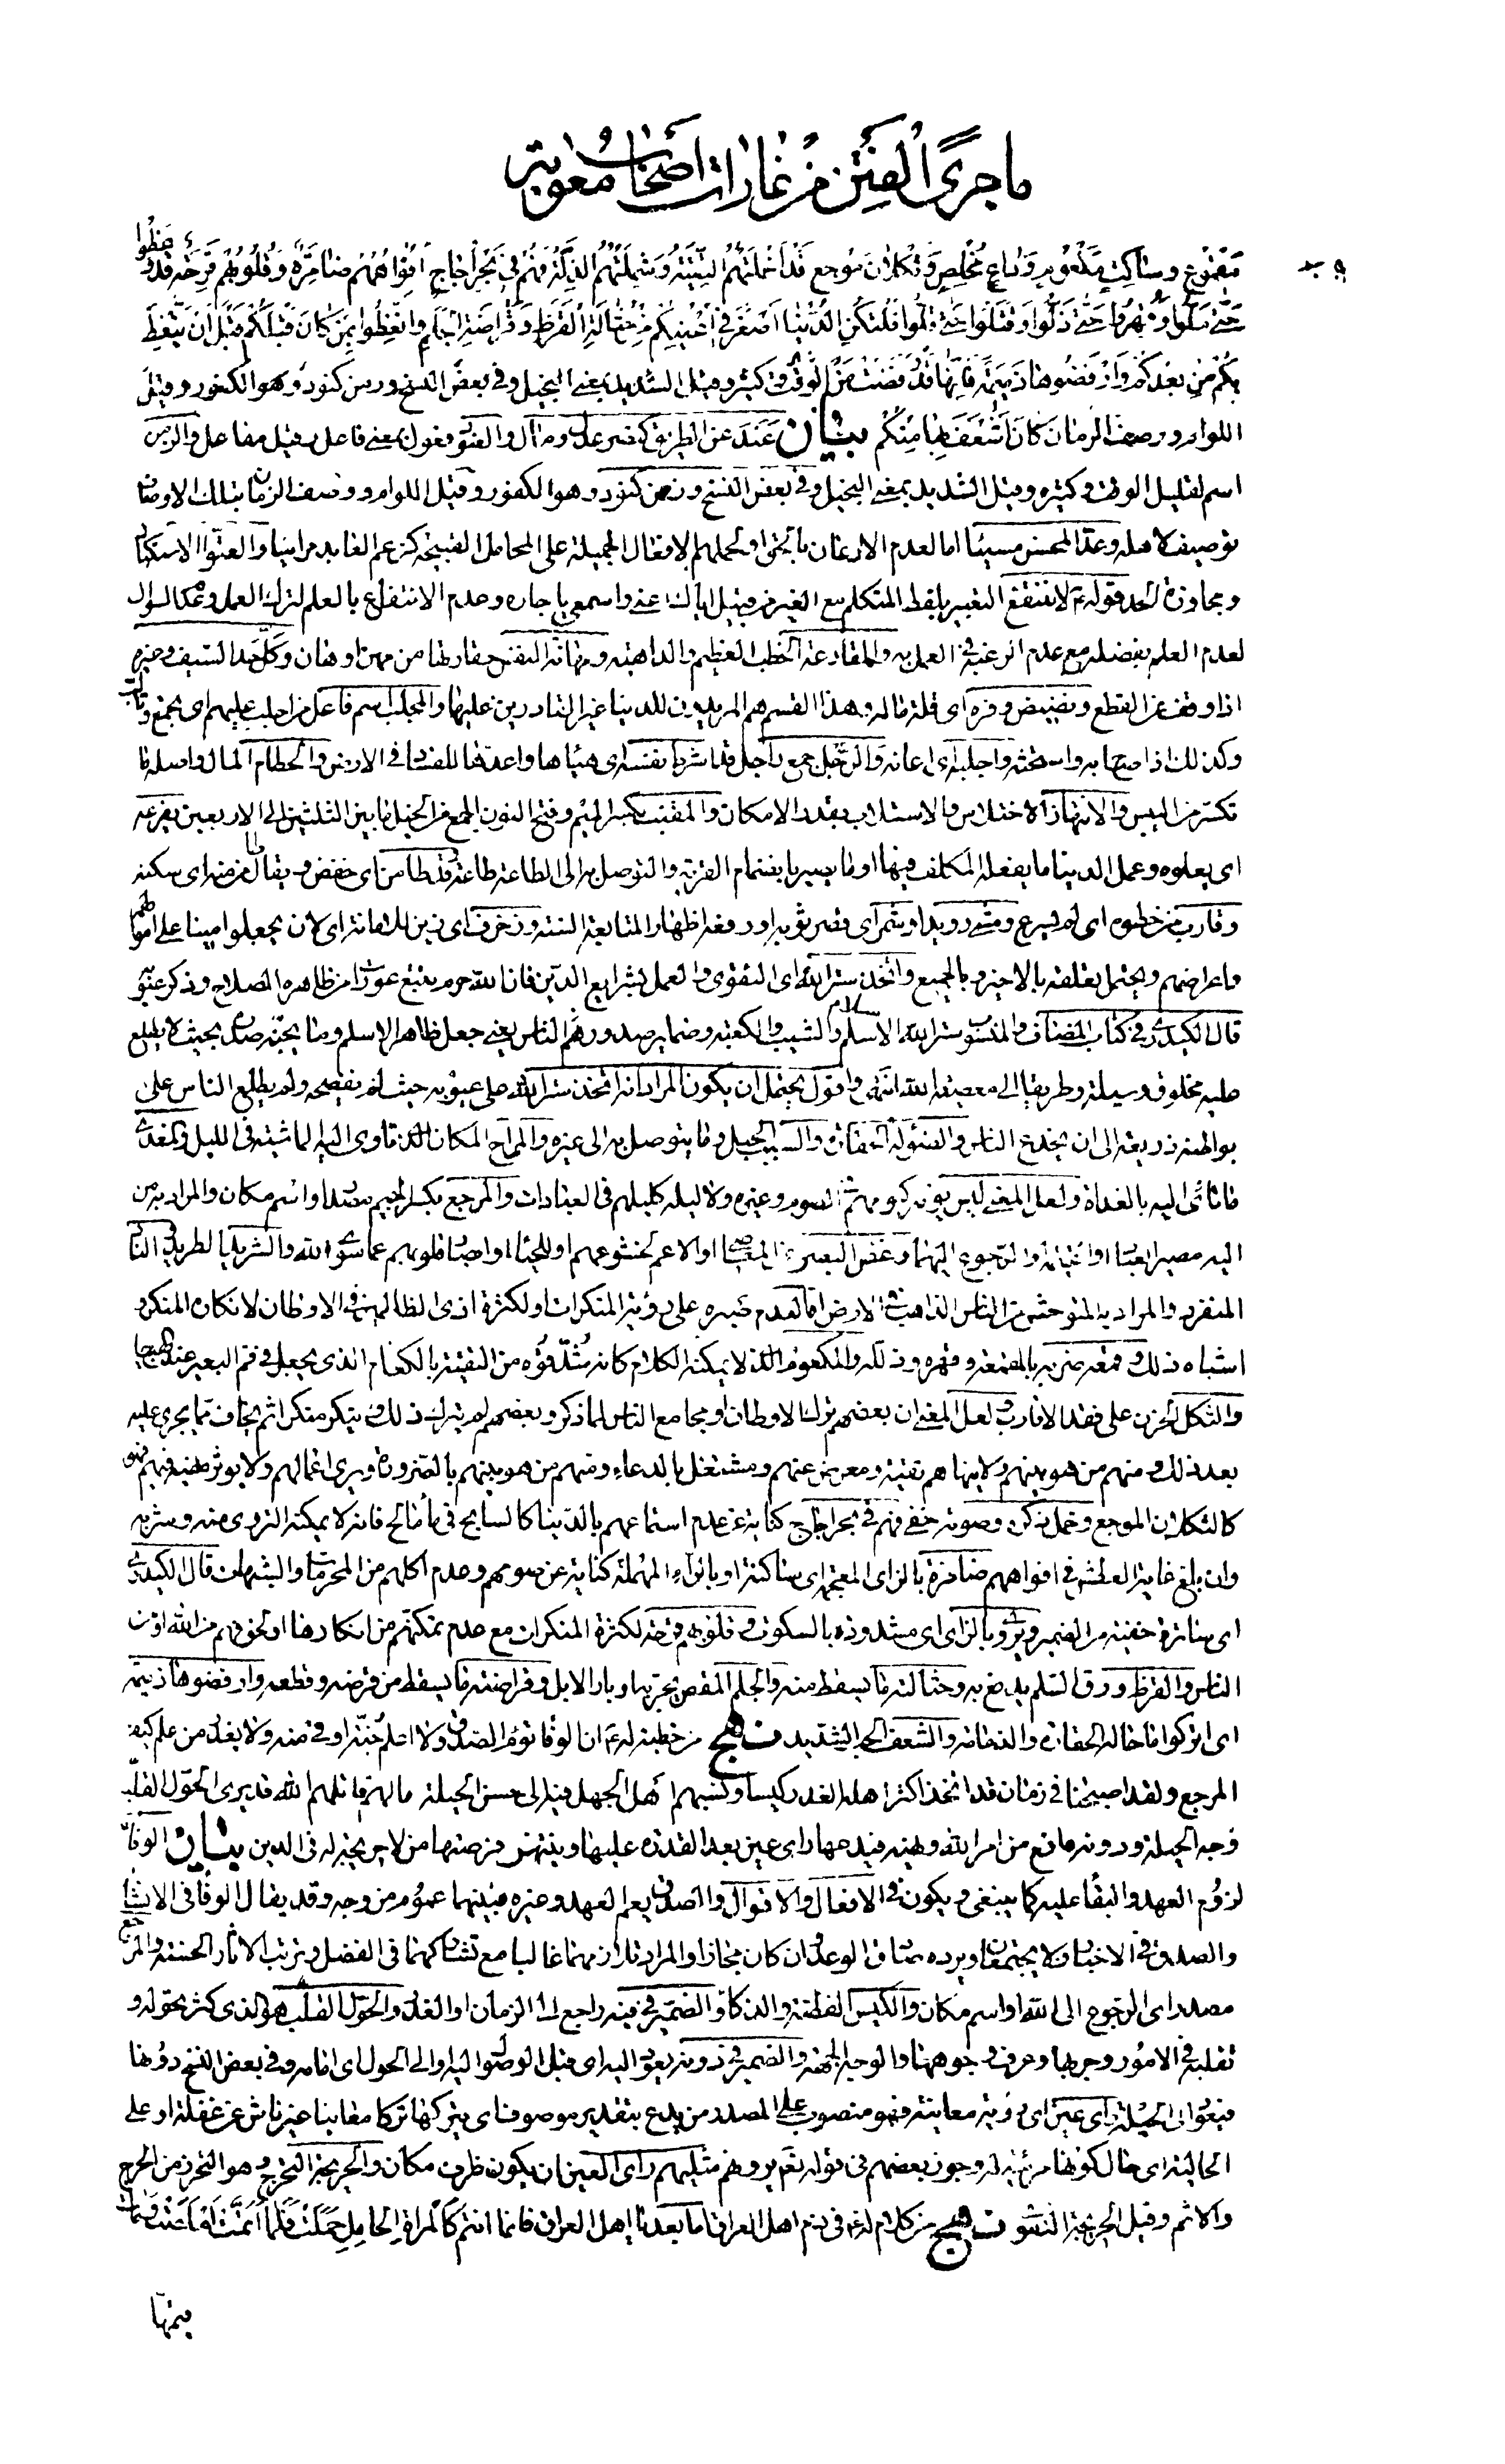 ما جرى من الفتن من غارات أصحاب معوية
مقموع وساكت مكعوم وداع مخلص وثكلان موجع قد أخملتهم التقية وشملتهم الذلة فهم في بحر أجاج أفواههم ضامزة وقلوبهم قرحة قد وعظوا
حتى ملوا وقهروا حتى ذلوا وقتلوا حتى قلوا فلتكن الدنيا أصغر في أعينكم من حثالة القرظ وقراضة الجلم واتعظوا بمن كان قبلكم قبل أن يتعظ
بكم من بعدكم وارفضوها ذميمة فإنها قد رفضت من الوقت وكثيره وقيل الشديد بمعنى البخيل وفي بعض النسخ وزمن كنود وهو الكفور وقيل
اللوام ووصف الزمان كان أشغف بها منكم بيان عند عن الطريق كنصر عدل ومال والعنود فعول بمعنى فاعل وقيل مفاعل والزمن
اسم لقليل الوقت وكثيره وقيل الشديد بمعنى البخيل وفي بعض النسخ وزمن كنود وهو الكفور وقيل اللوام ووصف الزمان بتلك الاوصاف
توصيف لاهله وعد المحسن مسيئا اما لعدم الاذعان بالحق او لحملهم الافعال الجميلة على المحامل القبيحة كزعم العابد مرائيا والعتو الاستكبار
ومجاوزة الحد قوله ع لا ننتفع التعبير بلفظ المتكلم مع الغير من قبيل اياك اعني واسمعي يا جاره وعدم الانتفاع بالعلم لترك العمل وعدم السؤال
لعدم العلم بفضله مع عدم الرغبة في العمل به والقارعة الخطب العظيم والداهية ومهانة النفس حقارتها من مهن او هان وكل حد السيف وغيره
اذا وقف عن القطع ونضيض وفره اى قلة ماله وهذا القسم هم المريدون للدنيا غير القادرين عليها والمجلب اسم فاعل من اجلب عليهم اى تجمع وتألب
وكذلك اذا صاح به واستحثه واجلبه اى اعانه والرجل جمع راجل وقد اشرط نفسه اى هياها واعدها للفساد في الارض والحطام المال واصله ما
تكسر من اليبس والانتهاز الاختلاس والاستلاب بقدر الامكان والمقنب بكسر الميم وفتح النون الجمع من الخيل ما بين الثلثين الى الاربعين يفرعه
اى يعلوه وعمل الدنيا ما يفعله المكلف فيها او ما يصير بانضمام القربة والتوصل به الى الطاعة طاعة وطامن اى خفض ويقال طامن منه اى سكنه
وقارب من خطوه اى لم يسرع ومشى رويدا وشمر اى قصر ثوبه او رفعه اظهارا لمتابعة السنة وزخرف اى زين للامانة اى لان يجعلوا امينا على اموالهم
واعراضهم ويحتمل تعلقه بالاخير وبالجميع واتخذ ستر الله اى التقوى والعمل بشرايع الدين فان الله حرم تتبع عورات من ظاهره الصلاح وذكر عيوبه
قال الكيدري في كتاب المضاف والمنسوب ستر الله الاسلام والشيب والكعبة وضماير صدور الناس يعني جعل ظاهر الاسلام وما يجنه صدره بحيث لا يطلع
عليه مخلوق وسيلة وطريقا الى معصية الله انتهى واقول يحتمل ان يكون المراد انه اتخذ ستر الله على عيوبه حيث لم يفضحه ولم يطلع الناس على
بواطنه ذريعة الى ان يخدع الناس والضؤولة الحقارة والسبب الحبل وما يتوصل به الى غيره والمراح المكان الذي تاوى اليه الماشية في الليل والمغدى
ما تاتى اليه بالغداة ولعل المعنى ليس يومه كيومهم في الصوم وغيره ولا ليله كليلهم في العبادات والمرجع بكسر الجيم مصدر او اسم مكان والمراد به من
اليه مصير العباد او والرجوع اليهما وغض البصر عن المعاصي او الاعم لخشوعهم او للحياء او صرف قلوبهم عما سوى الله والشريد الطريد النادّ
المنفرد والمراد به المتوحش من الناس الذاهب في الارض اما لعدم صبره على رؤية المنكرات او لكثرة اذى الظالمين في الاوطان لانكاره المنكر و
اشباه ذلك وقمعه ضربه بالمقمعة وقهره وذلله والمكعوم الذي لا يمكنه الكلام كانه شد فوه من التقية بالكعام الذى يجعل في فم البعير عند الهياج
والثكل الحزن على فقد الاقارب ولعل المعنى ان بعضهم ترك الاوطان او مجامع الناس لما ذكر وبعضهم لم يترك ذلك وينكر منكرا ثم يخاف مما يجرى عليه
بعد ذلك ومنهم من هو بينهم ولا ينهاهم تقية ومعرض عنهم ومشتغل بالدعاء ومنهم من هو بينهم بالضرورة ويرى اعمالهم ولا يؤثر نهيه فيهم فهو
كالثكلان الموجع وخمل ذكره وصوته خفى وهم في بحر اجاج كناية عن عدم استمتاعهم بالدنيا كالسابح في ماء مالح فانه لا يمكنه التروى منه وشربه
وان بلغ غاية العطش وافواههم ضامزة بالزاى المعجمة اى ساكنة او بالراء المهملة كناية عن صومهم وعدم اكلهم من المحرمات والشبهات قال الكيدري
اى ساترة خفية من الضمير ويروى بالزاى اى مشدودة بالسكوت وقلوبهم قرحة لكثرة المنكرات مع عدم تمكنهم من انكارها او لخوفهم من الله او من
الناس والقرظ ورق السلم يدبغ به وحثالته ما يسقط منه والجلم المقص يجز به اوبار الابل وقراضته ما يسقط من قرضه وقطعه وارفضوها ذميمة
اى اتركوا ما حاله الحقارة والذمامة والشغف الحب الشديد نهج من خطبة له ع ان الوفا توأم الصدق ولا اعلم جنة اوقى منه ولا يغدر من علم كيف
المرجع ولقد اصبحنا في زمان قد اتخذ اكثر اهله الغدر كيسا ونسبهم اهل الجهل فيه الى حسن الحيلة ما لهم قاتلهم الله قد يرى الحول القلب
وجه الحيلة ودونه مانع من امر الله ونهيه فيدعها راى عين بعد القدرة عليها وينتهز فرصتها من لا حريجة له في الدين بيان الوفاء
لزوم العهد والبقاء عليه كما ينبغى ويكون في الافعال والاقوال والصدق يعم العهد وغيره فبينهما عموم من وجه وقد يقال الوفا في الانشاء
والصدق في الاخبار فلا يجتمعان ويرده صادق الوعد وان كان مجازا والمراد تلازمهما غالبا مع تشاركهما في الفضل وترتب الاثار الحسنة والمرجع
مصدر اى الرجوع الى الله او اسم مكان والكيس الفطنة والذكاء والضمير في فيه راجع الى الزمان او الغدر والحول القلب هو الذى كثر تحوله و
تقلبه في الامور وجربها وعرف وجوهها والوجه الجهة والضمير في دونه يعود اليه اى قبل الوصول اليه او الى الحول اى امامه وفي بعض النسخ دونها
فيعود الى الحيلة راى عين اى رؤية معاينة فهو منصوب على المصدر من يدع بتقدير موصوف اى يتركها تركا معاينا غير ناش عن غفلة او على
الحالية اى حال كونها مرئية له وجوز بعضهم في قوله تعالى يرونهم مثليهم راى العين ان يكون ظرف مكان والحريجة التحرج وهو التحرز من الحرج
والاثم وقيل الحريجة التقوى نهج من كلام له ع في ذم اهل العراق اما بعد يا اهل العراق فانما انتم كالمراة الحامل حملت فلما اتمت املصت ومات
قيمها